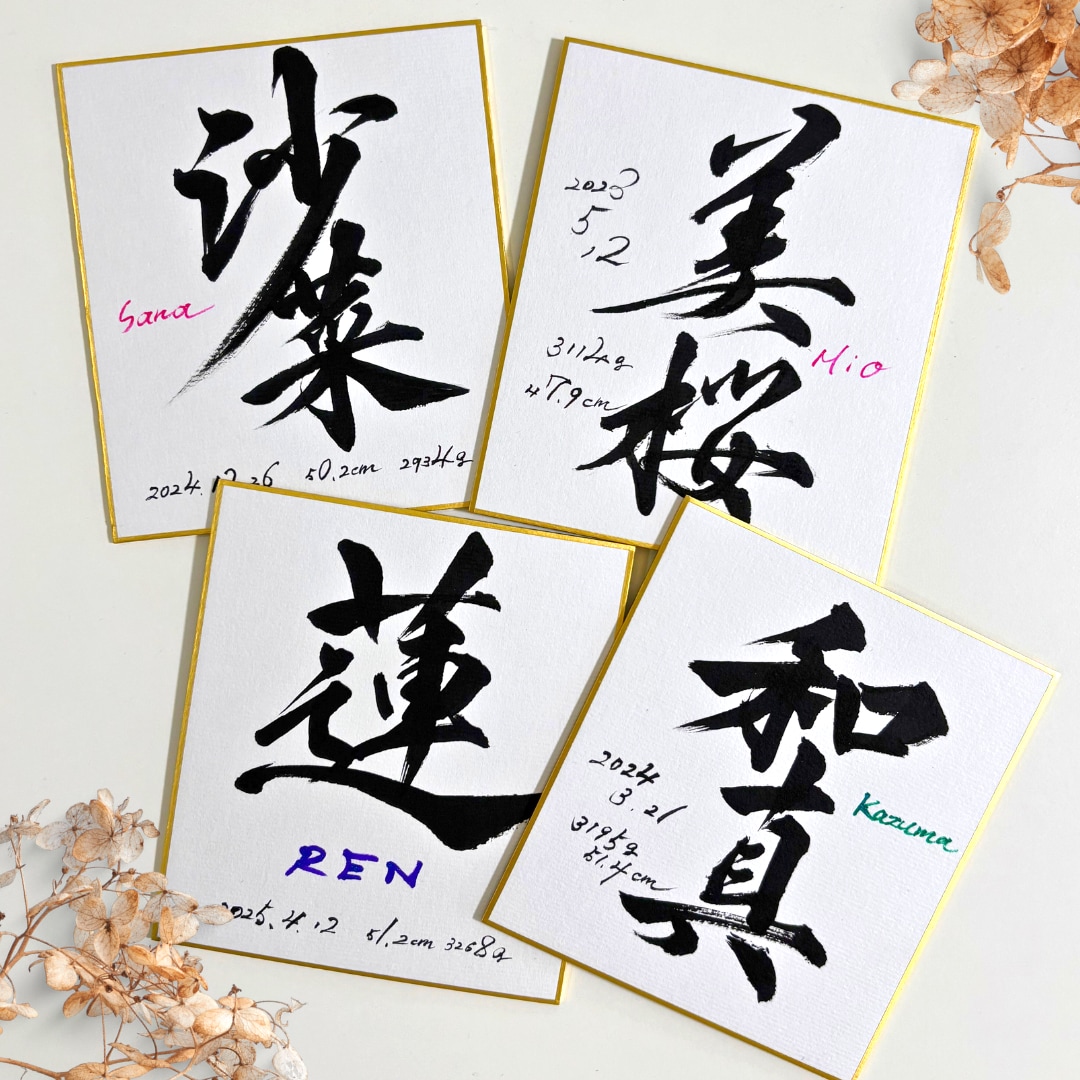 沙菜
Sana
2024. 12 26 50.2cm 2934g
美桜
Mio
2023
5
.12
3112g
47.9cm
蓮
REN
2025.4.12 51.2cm 3268g
和真
Kazuma
2024
3.21
3195g
51.4cm